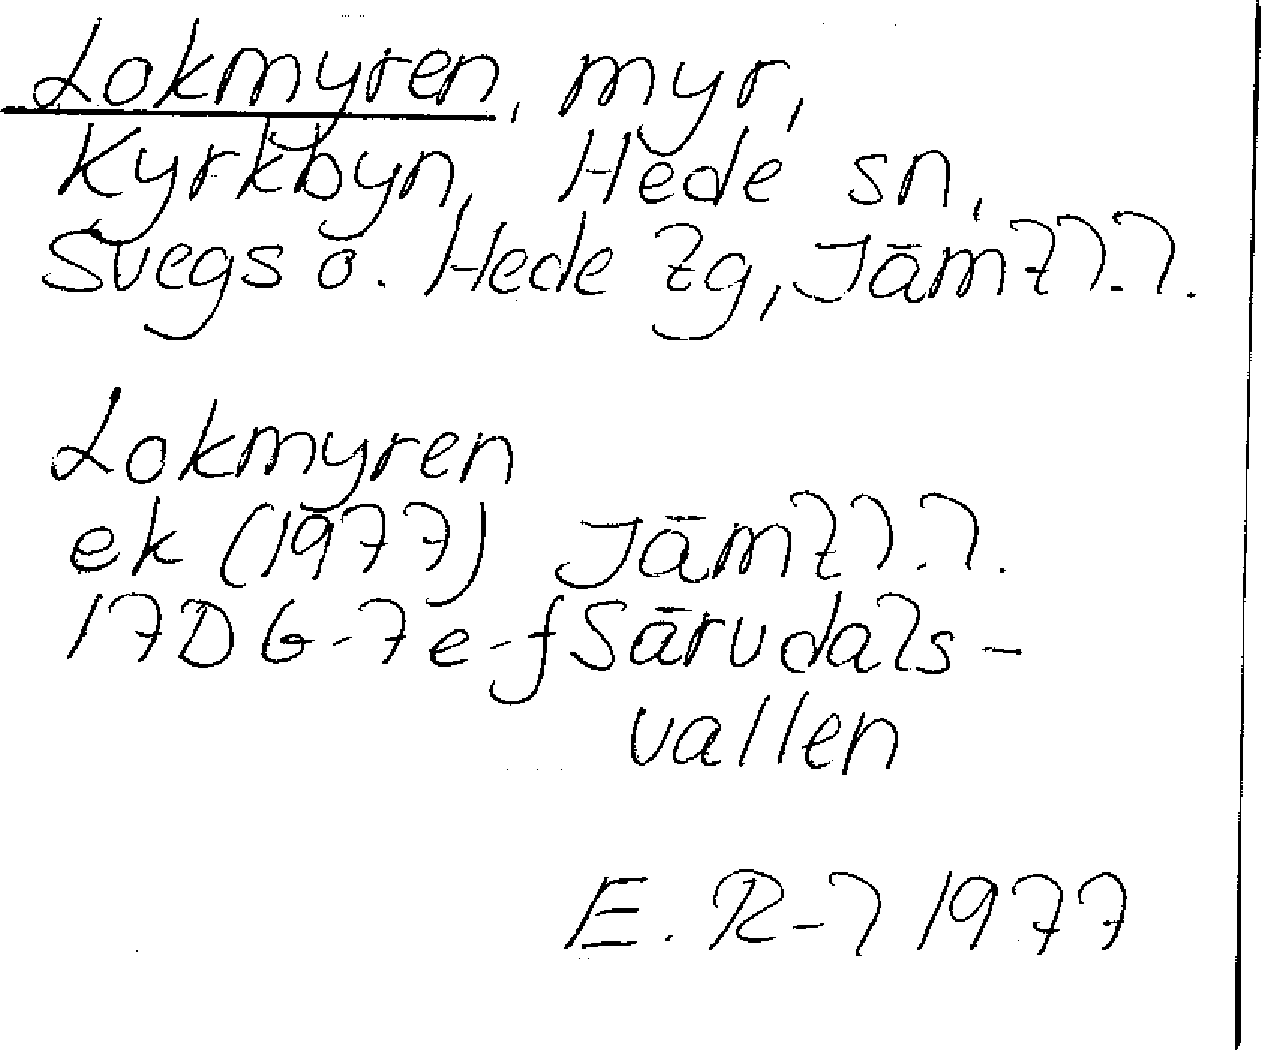 Lokmyren, myr,
Kyrkbyn, Hede sn,
Svegs o. Hede tg, Jämtl.l.
Lokmyren
ek (1977) Jämtl.l.
17D 6-7e-f Särvdals-
vallen
E. R-l 1977